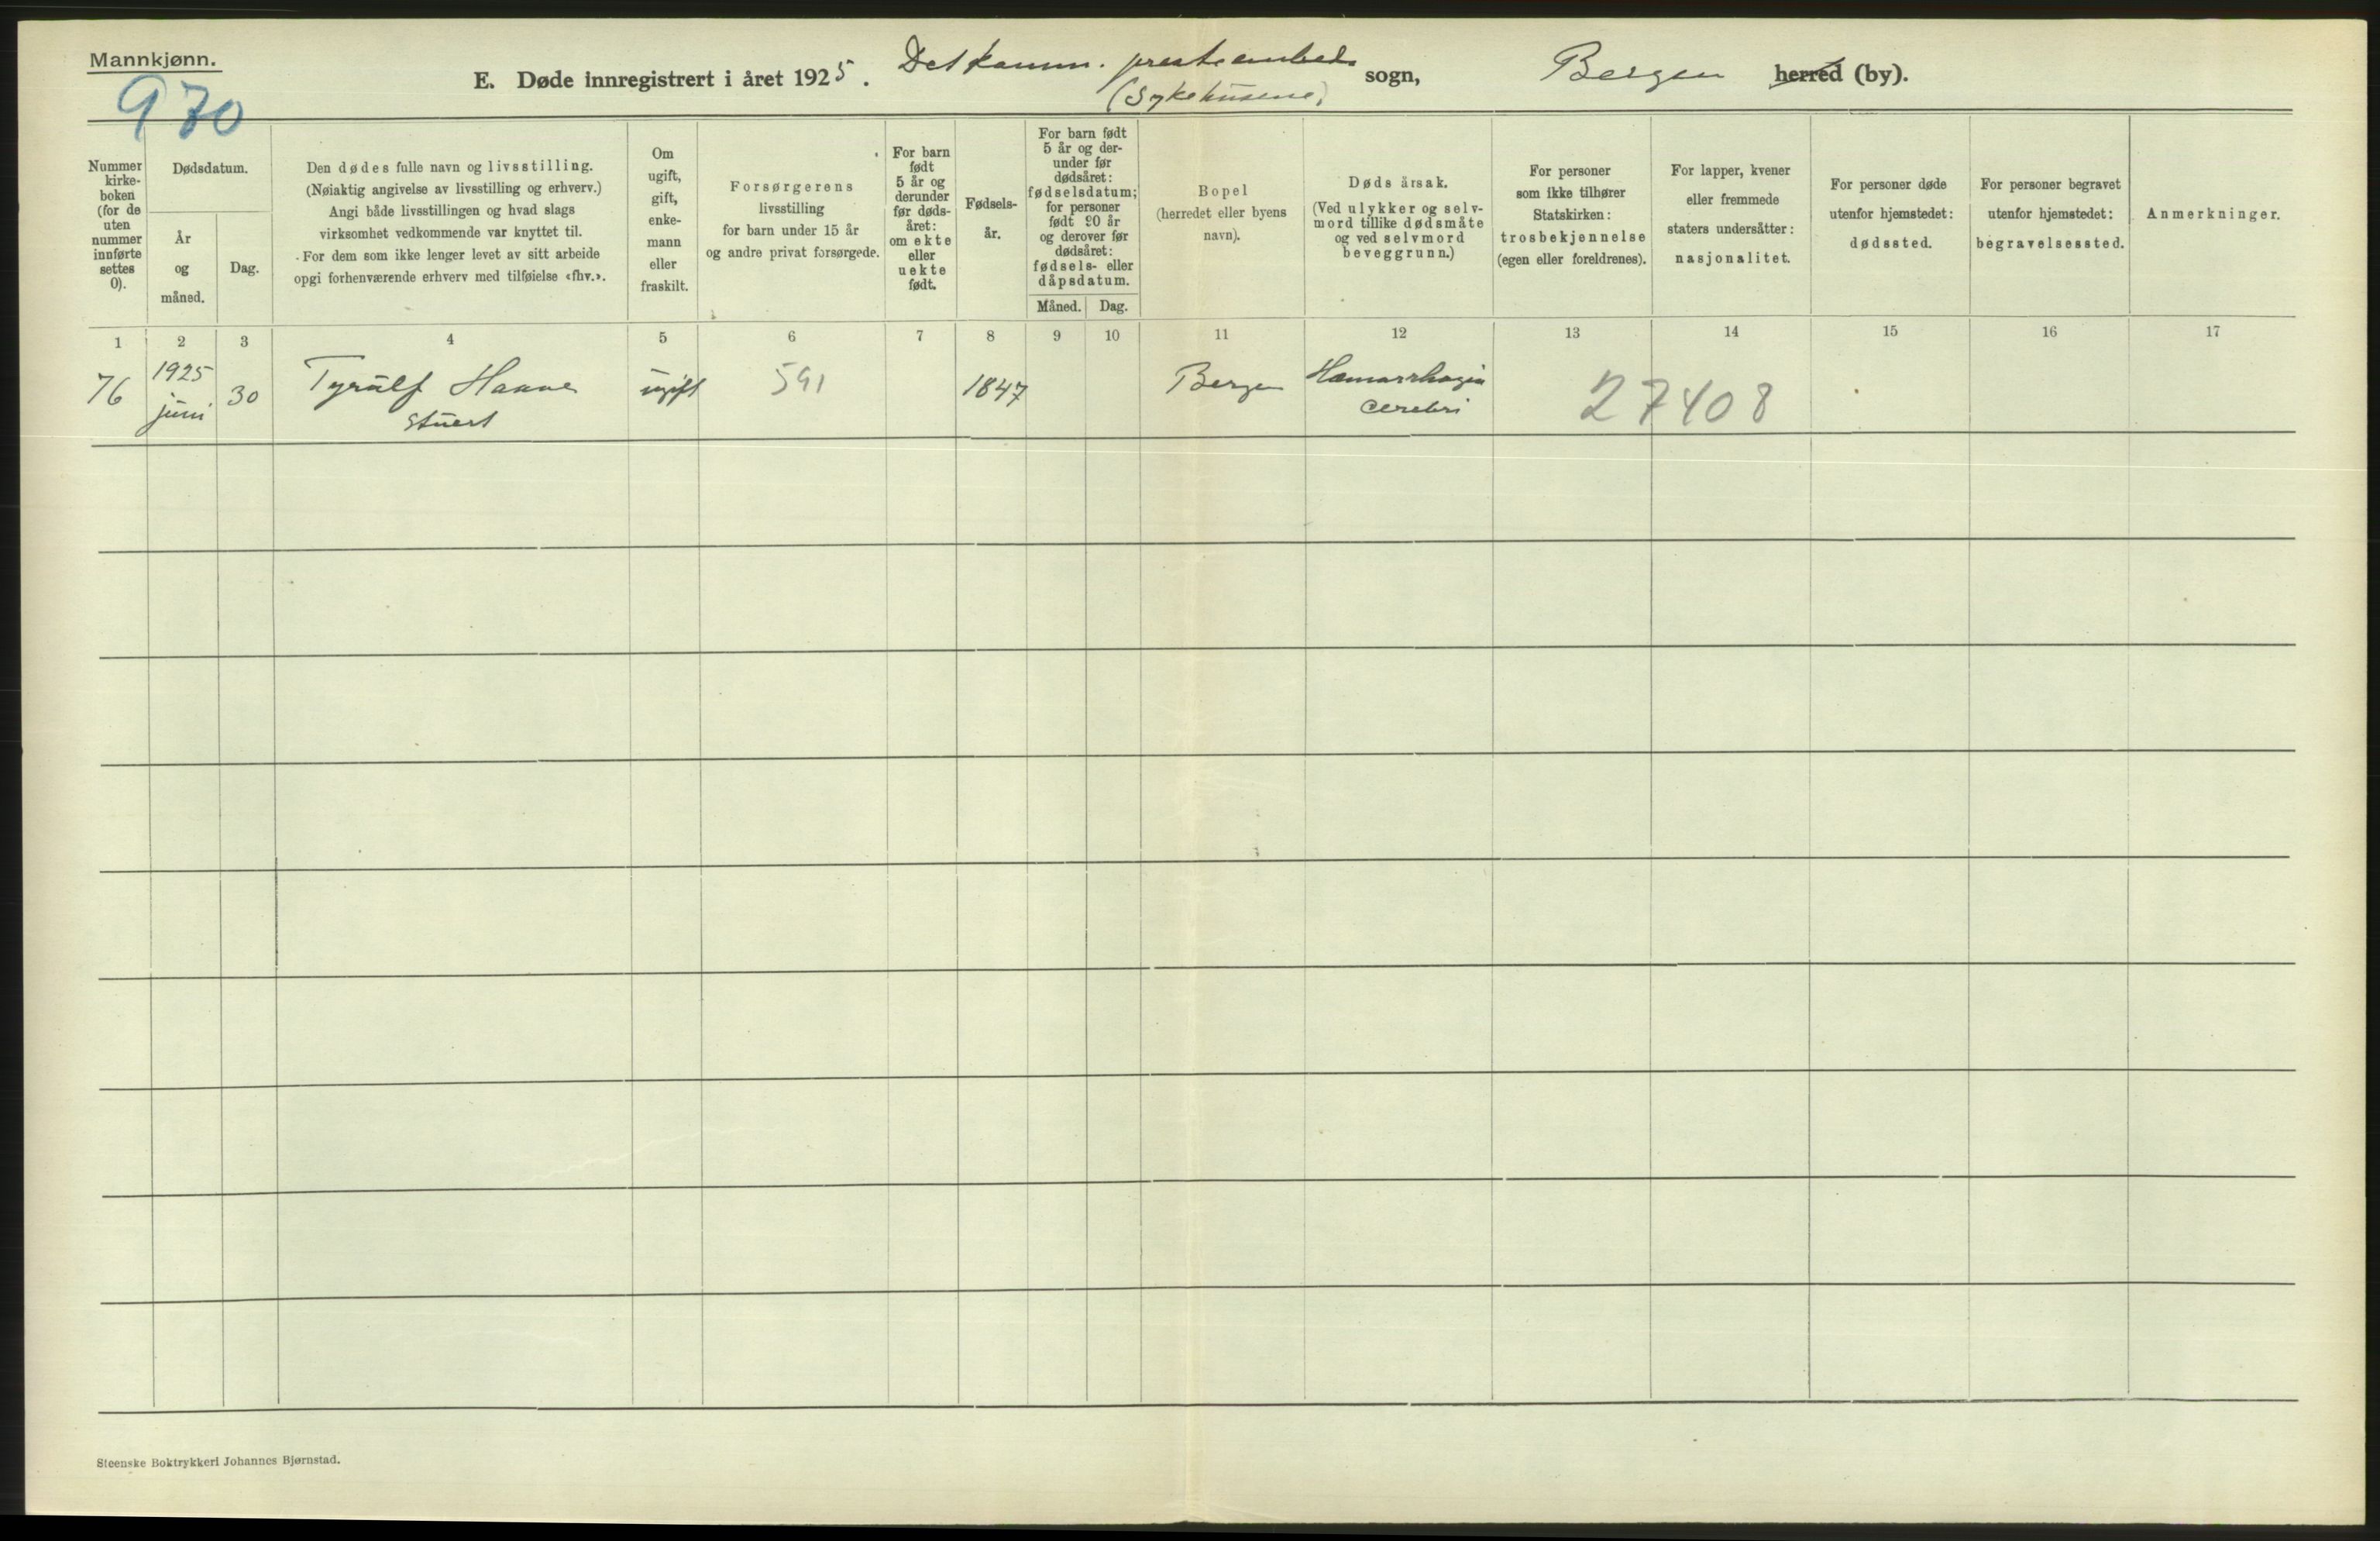 Mannkjønn.
970
E. Døde innregistrert i året 1925. Det komm. presteembede sogn, Bergen herred (by).
(Sykehusene)
Nummer
kirke-
boken
(for de
uten
nummer
innførte
settes
0).
Dødsdatum.
År
og
måned.
Dag.
Den dødes fulle navn og livsstilling.
(Nøiaktig angivelse av livsstilling og erhverv.)
Angi både livsstillingen og hvad slags
virksomhet vedkommende var knyttet til.
For dem som ikke lenger levet av sitt arbeide
opgi forhenværende erhverv med tilføielse «fhv.».
Om
ugift,
gift,
enke-
mann
eller
fraskilt.
Forsørgerens
livsstilling
for barn under 15 år
og andre privat forsørgede.
For barn
født
5 år og
derunder
før døds-
året:
om ekte
eller
uekte
født.
Fødsels-
år.
For barn født
5 år og der-
under før
dødsåret:
fødselsdatum;
for personer
født 90 år
og derover før
dødsåret:
fødsels- eller
dåpsdatum.
Måned. Dag.
Bopel
(herredet eller byens
navn).
Dødsårsak.
(Ved ulykker og selv-
mord tillike dødsmåte
og ved selvmord
beveggrunn.)
For personer
som ikke tilhører
Statskirken:
trosbekjennelse
(egen eller foreldrenes).
For lapper, kvener
eller fremmede
staters undersåtter:
nasjonalitet.
For personer døde
utenfor hjemstedet:
dødssted.
For personer begravet
utenfor hjemstedet:
begravelsessted.
Anmerkninger.
1 2 3 4 5 6 7 8 9 10 11 12 13 14 15 16 17
76 1925 juni 30 Tyrülf ugift 591 1847 Bergen Hæmorrhagia
cerebri
27408
Steenske Boktrykkeri Johannes Bjørnstad.